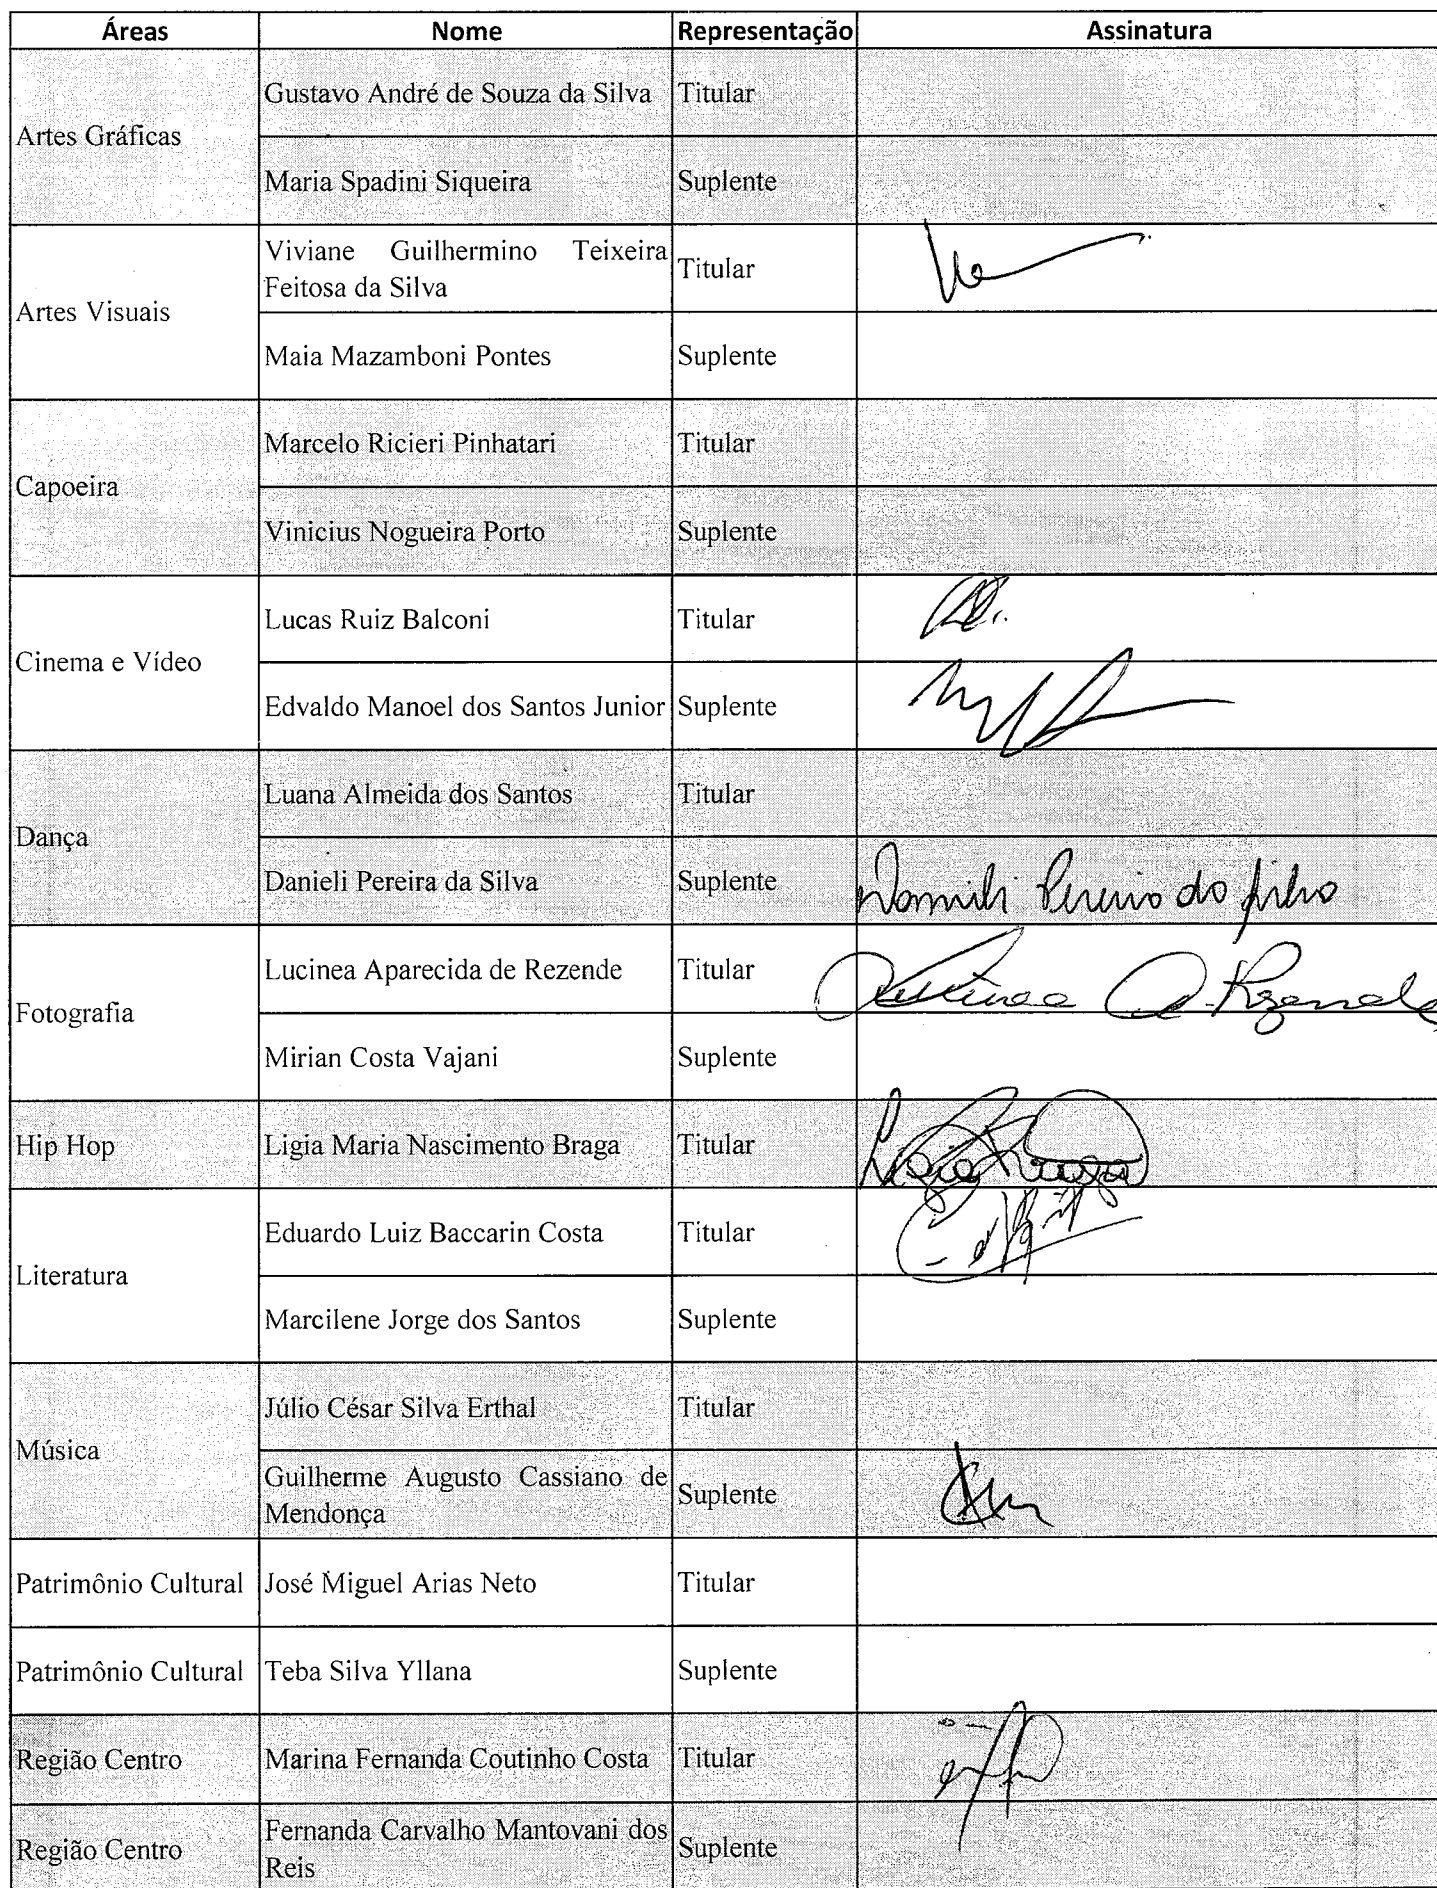 Áreas Nome Representação Assinatura
Artes Gráficas
Gustavo André de Souza da Silva Titular
Maria Spadini Siqueira Suplente
Artes Visuais
Viviane Guilhermino Teixeira
Feitosa da Silva
Titular
Maia Mazamboni Pontes Suplente
Capoeira
Marcelo Ricieri Pinhatari Titular
Vinicius Nogueira Porto Suplente
Cinema e Vídeo
Lucas Ruiz Balconi Titular
Edvaldo Manoel dos Santos Junior Suplente
Dança
Luana Almeida dos Santos Titular
Danieli Pereira da Silva Suplente Danieli Pereira da Silva
Fotografia
Lucinea Aparecida de Rezende Titular Lucinea A. Rezende
Mirian Costa Vajani Suplente
Hip Hop Ligia Maria Nascimento Braga Titular Ligia Braga
Literatura
Eduardo Luiz Baccarin Costa Titular
Marcilene Jorge dos Santos Suplente
Música
Júlio César Silva Erthal Titular
Guilherme Augusto Cassiano de
Mendonça
Suplente
Patrimônio Cultural José Miguel Arias Neto Titular
Patrimônio Cultural Teba Silva Yllana Suplente
Região Centro Marina Fernanda Coutinho Costa Titular
Região Centro
Fernanda Carvalho Mantovani dos
Reis
Suplente